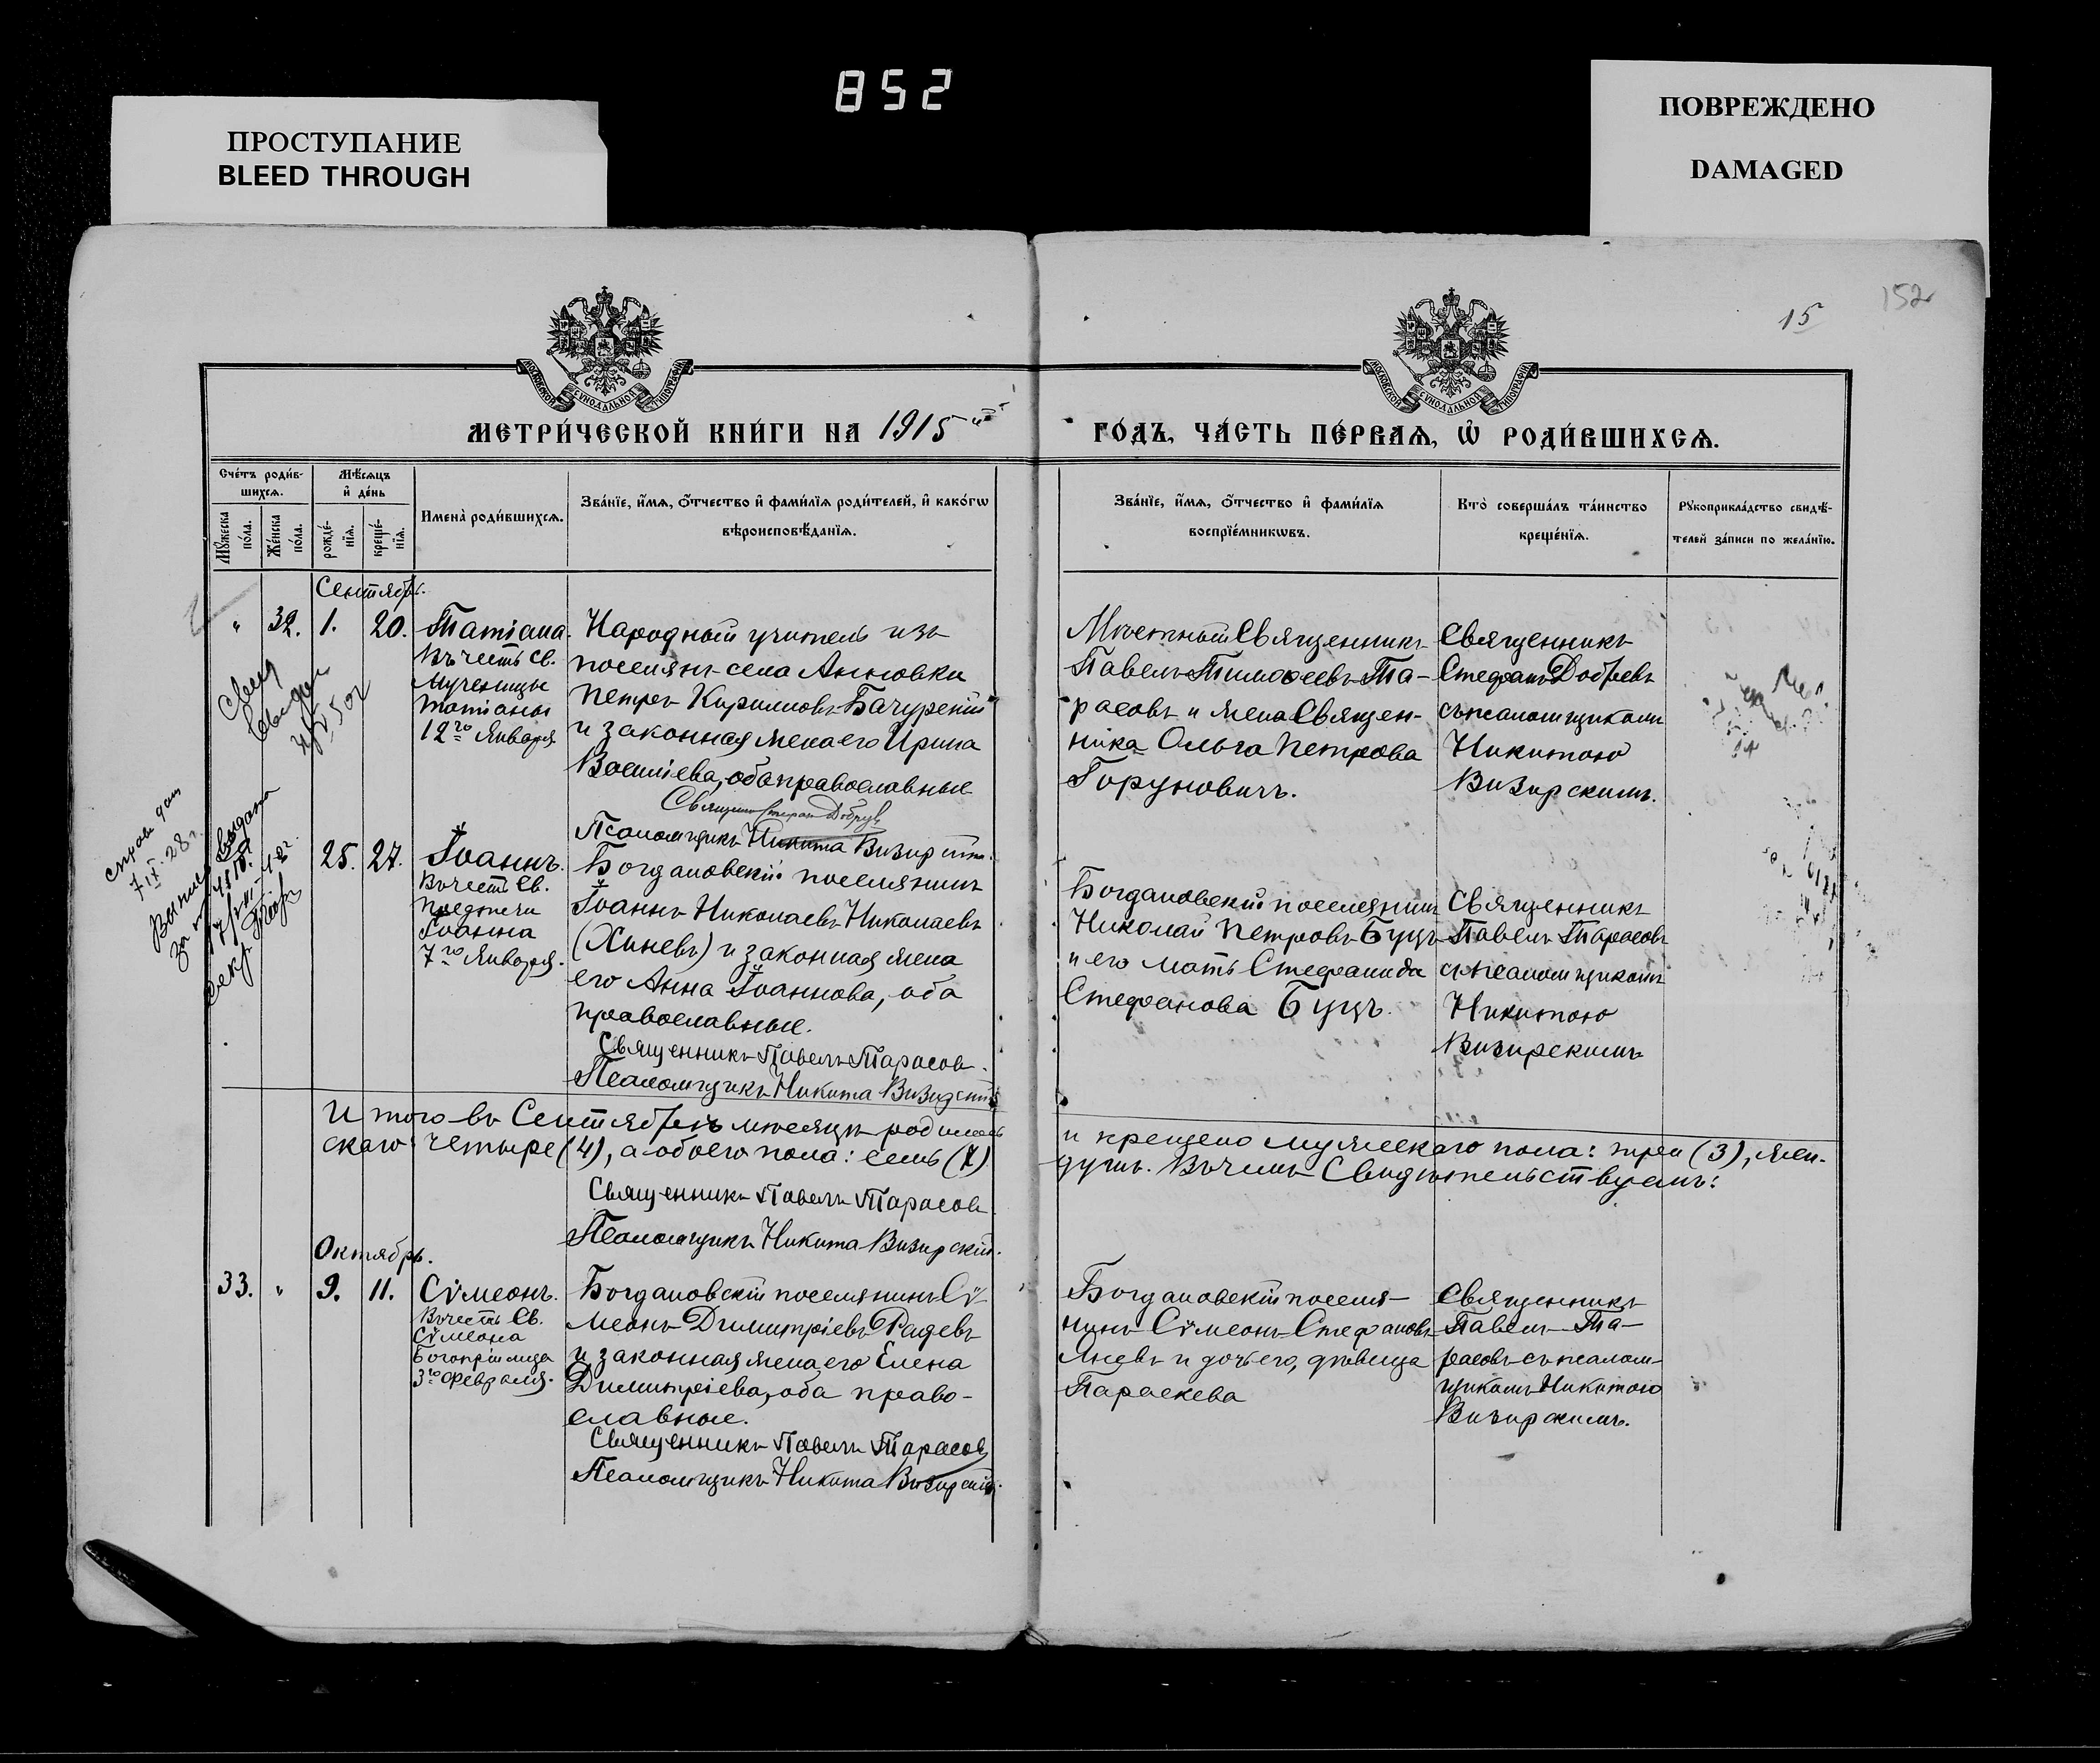 852
ПРОСТУПАНИЕ
BLEED THROUGH
ПОВРЕЖДЕНО
DAMAGED
152
15
МОСКОВСКОЙ СѴНОДАЛЬНОЙ ТИПОГРАФІИ
МОСКОВСКОЙ СѴНОДАЛЬНОЙ ТИПОГРАФІИ
МЕТРИ́ЧЕСКОЙ КНИ́ГИ НА 1915 й
ГО́ДЪ, ЧА́СТЬ ПЕ́РВАѦ, Ѡ҆ РОДИ́ВШИХСѦ.
Сче́тъ роди́в-
шихсѧ.
Мꙋ́жеска по́ла.
Же́нска по́ла.
Мѣ́сѧцъ
и҆ де́нь
рожде́-
нїѧ.
креще́-
нїѧ.
Имена̀ роди́вшихсѧ.
Зва́нїе, и҆́мѧ, ѻ҆́тчество и҆ фами́лїѧ роди́телей, и҆ како́гѡ
вѣроисповѣ́данїѧ.
Зва́нїе, и҆́мѧ, ѻ҆́тчество и҆ фами́лїѧ
воспрїе́мникѡвъ.
Кто̀ соверша́лъ та́инство
креще́нїѧ.
Рꙋкоприкла́дство свидѣ́-
телей за́писи по жела́нїю.
Сентябрь.
" 32. 1. 20.
Татіана.
Въ честь св.
Мученицы
Татіаны
12го Января
Народный учитель изъ
поселянъ села Анновки
Петръ Кирилловъ Бачурскій
и законная жена его Ирина
Василіева, оба православные
Священ. Стефанъ Добревъ
Псаломщикъ Никита Визирскій.
Мѣстный Священникъ
Павелъ Тимофеевъ Та-
расовъ и жена Священ-
ника Ольга Петрова
Горуновичъ.
Священникъ
Стефанъ Добревъ
съ псаломщикомъ
Никитою
Визирскимъ.
7 IX. 28 г.
25. 27.
Іоаннъ.
Въ честь Св.
Предтечи
Іоанна
7го Января.
Богдановскій поселянинъ
Іоаннъ Николаевъ Николаевъ
(Хиневъ) и законная жена
его Анна Іоаннова, оба
православные.
Священникъ Павелъ Тарасовъ.
Псаломщикъ Никита Визирскій
Богдановскій поселянинъ
Николай Петровъ Буцъ
и его мать Стефанида
Стефанова Буцъ.
Священникъ
Павелъ Тарасовъ
съ псаломщикомъ
Никитою
Визирскимъ
Итого въ Сентябрѣ мѣсяцѣ родилось
скаго: четыре (4), а обоего пола: семь (7)
и крещено мужескаго пола: три (3), жен-
душъ. Въ чемъ Свидѣтельствуемъ:
Священникъ Павелъ Тарасовъ
Псаломщикъ Никита Визирскій.
Октябрь.
33. " 9. 11.
Сѵмеонъ.
Въ честь Св.
Сѵмеона
Богопріимца
3го Февраля.
Богдановскій поселянинъ Сѵ-
меонъ Димитріевъ Радевъ
и законная жена его Елена
Димитріева, оба право-
славные.
Священникъ Павелъ Тарасовъ
Псаломщикъ Никита Визирскій.
Богдановскій поселя-
нинъ Сѵмеонъ Стефановъ
и дочь его, дѣвица
Параскева
Священникъ
Павелъ Та-
расовъ съ псалом-
щикомъ Никитою
Визирскимъ.